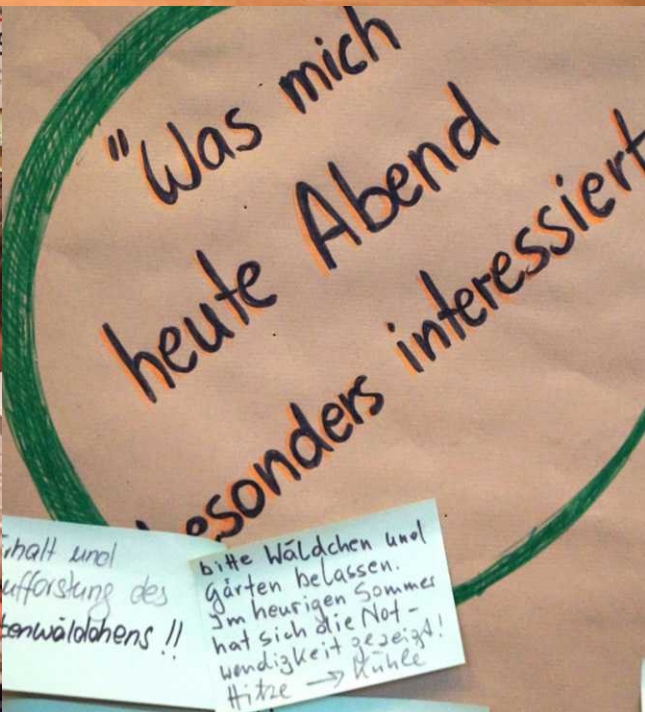 "Was mich
heute Abend
besonders interessiert
halt und
ufforstung des
tenwäldchens !!
bitte Wäldchen und
Gärten belassen.
Im heurigen Sommer
hat sich die Not-
wendigkeit gezeigt!
Hitze → Kühle